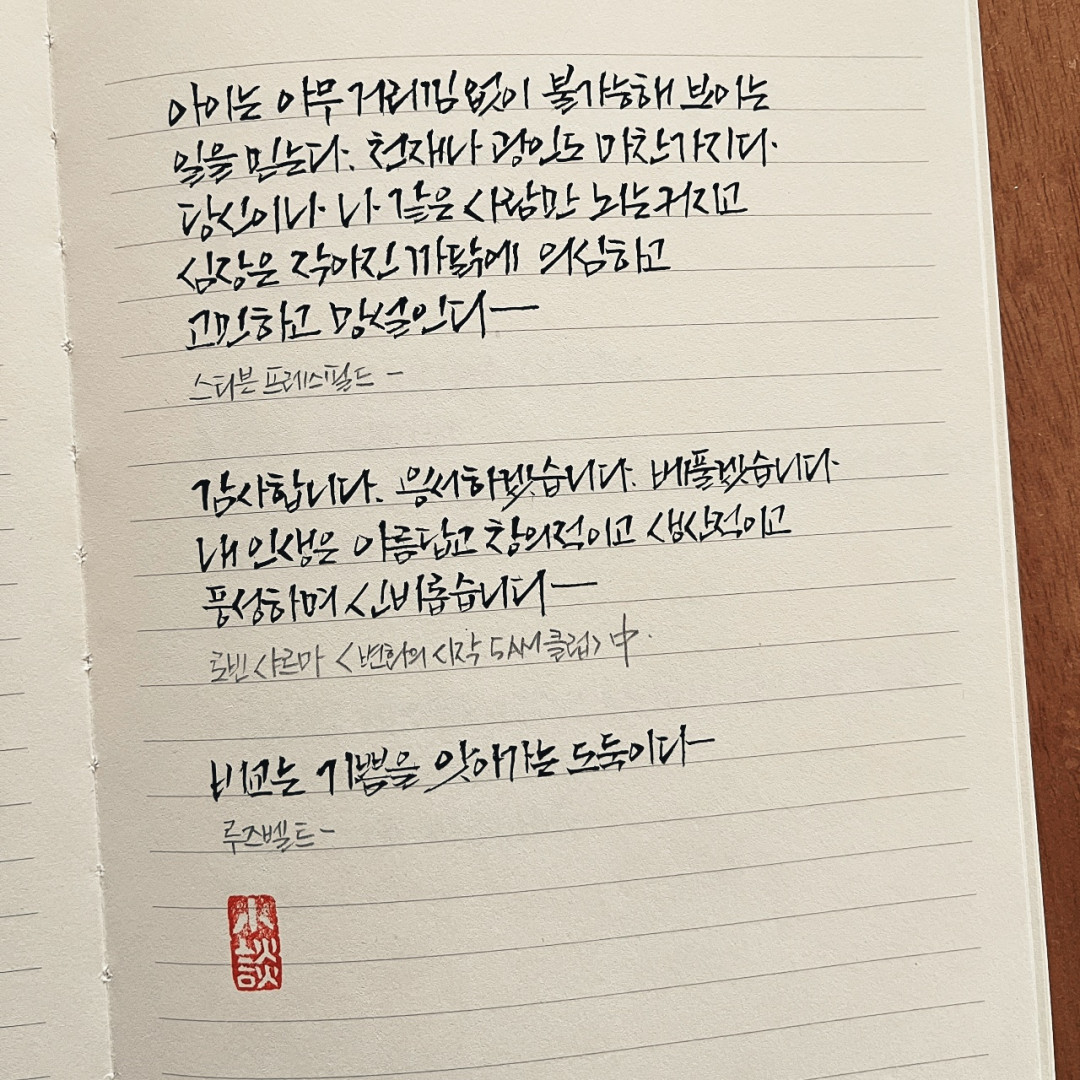 아이는 아무 거리낌 없이 불가능해 보이는
일을 믿는다. 천재나 광인도 마찬가지다.
당신이나 나 같은 사람만 뇌는 커지고
심장은 작아진 까닭에 의심하고
고민하고 망설인다―
스티븐 프레스필드 -
감사합니다. 용서하겠습니다. 베풀겠습니다.
내 인생은 아름답고 창의적이고 생산적이고
풍성하며 신비롭습니다―
로빈 샤르마 <변화의 시작 5AM 클럽> 中.
비교는 기쁨을 앗아가는 도둑이다-
루즈벨트-
小談